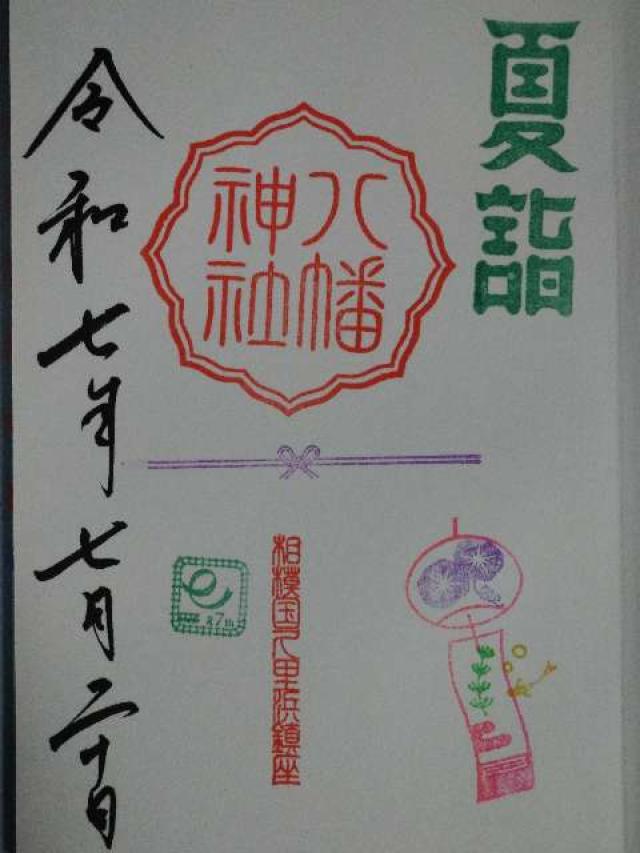 夏詣
八幡
神社
相模国久里浜鎮座
令和七年七月二十日